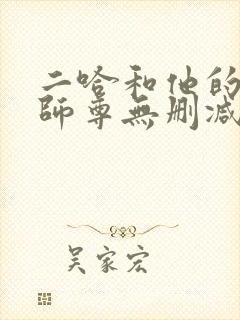 二哈和他的
師尊無刪減
吳家宏